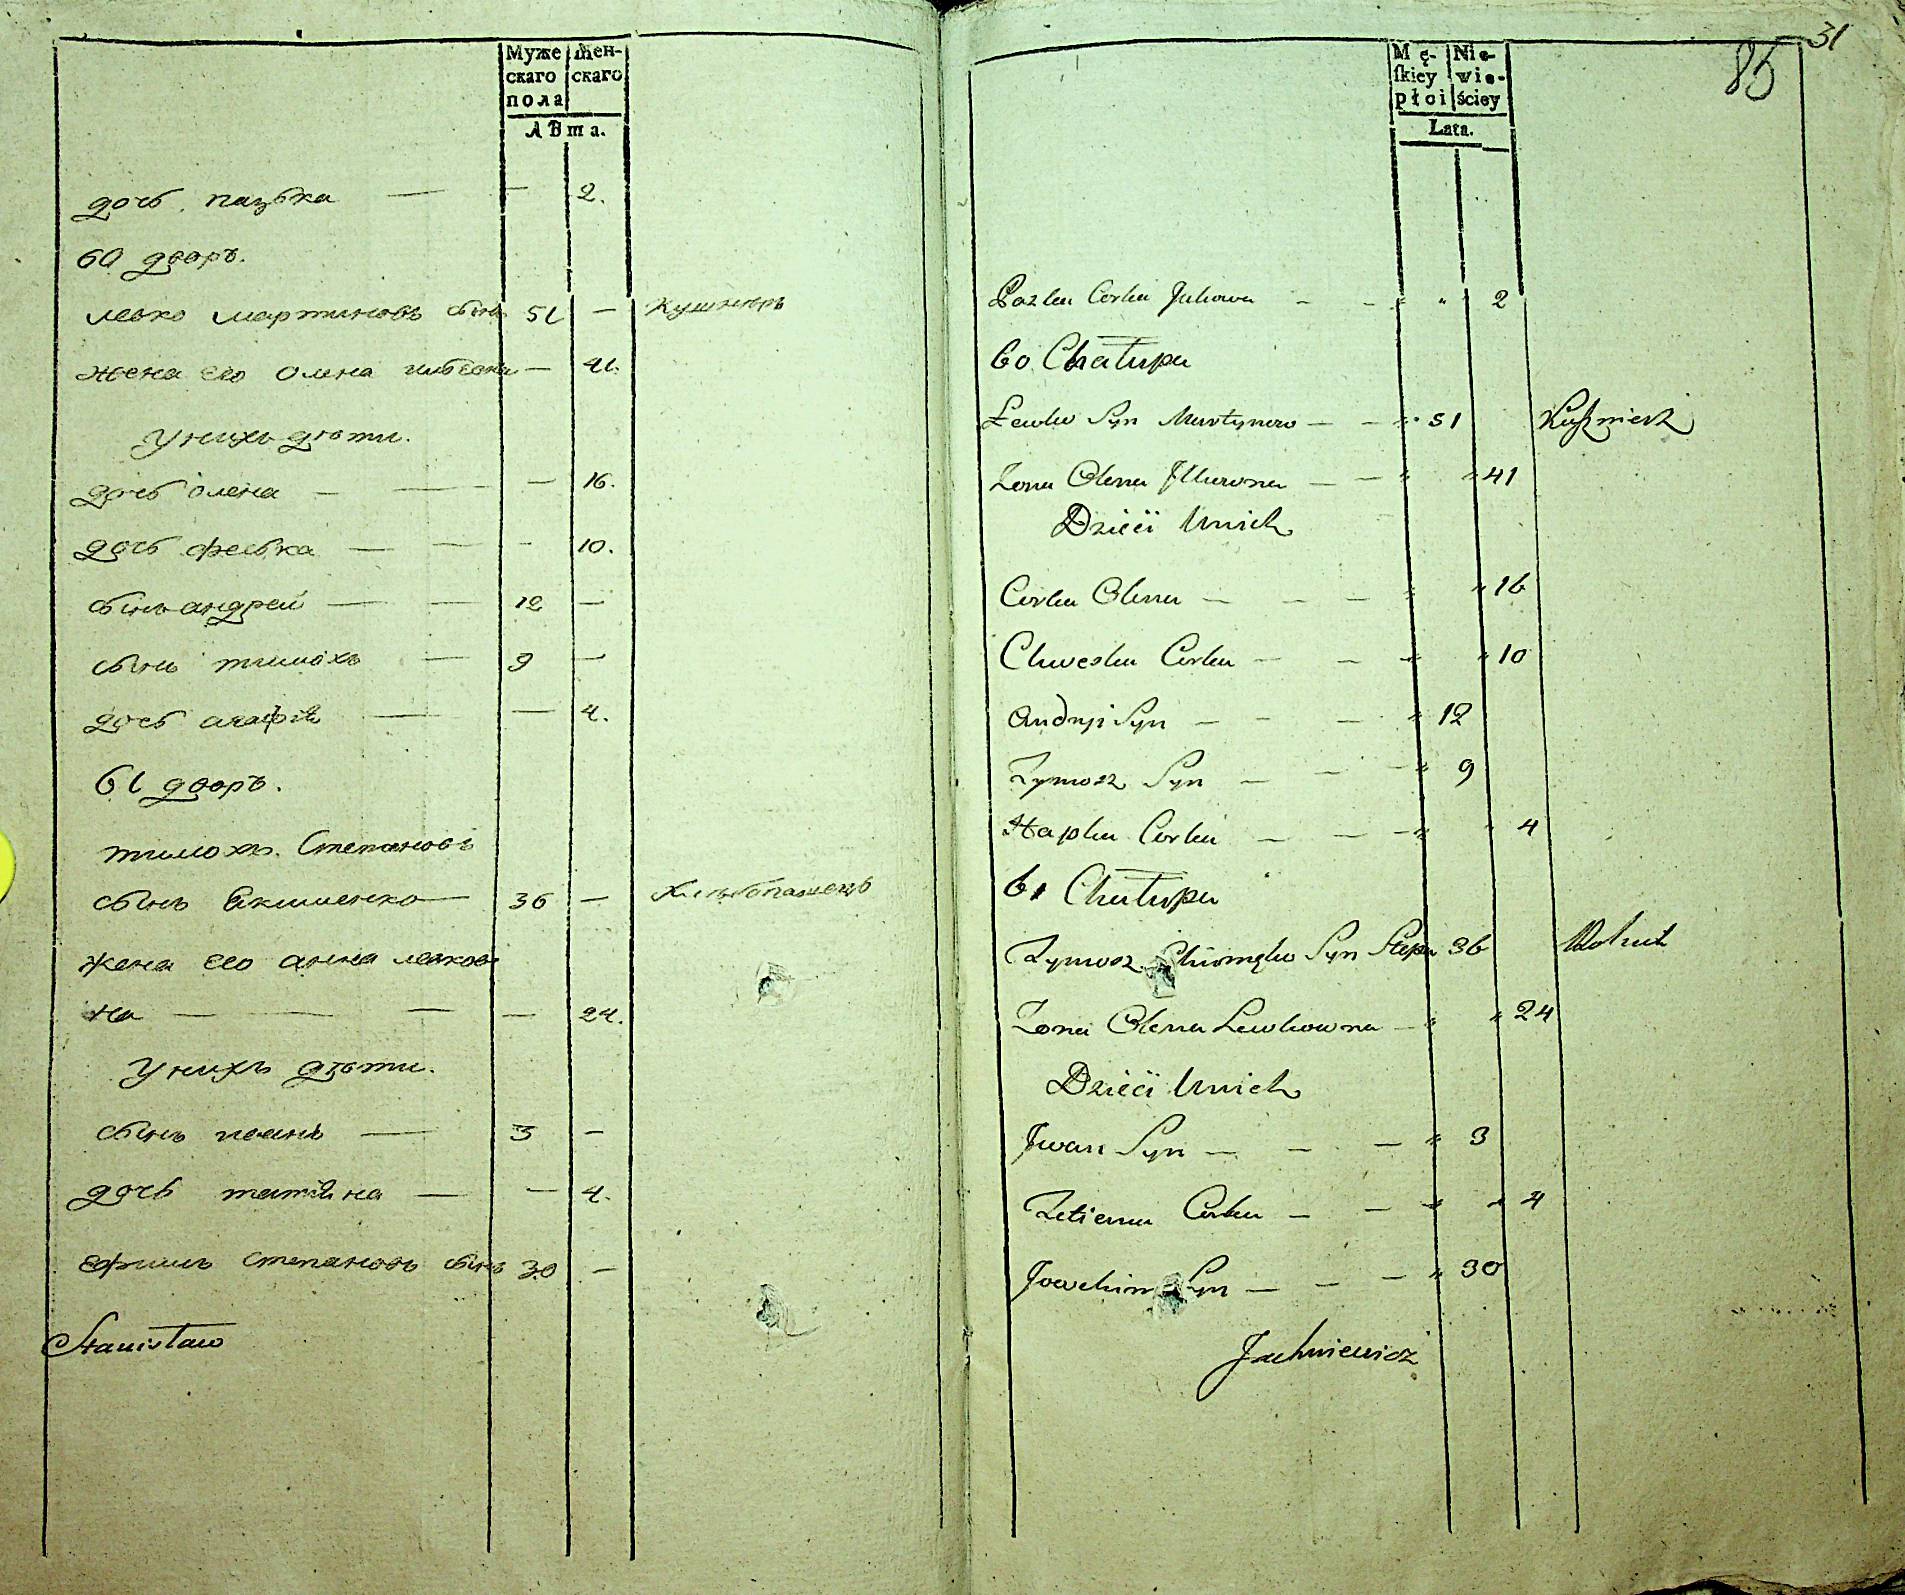 Муже Жен-
скаго скаго
пола
Лѣта.
дочь пазька — — 2.
60 дворъ.
левко мартиновъ сынъ 51 — кушнѣръ
жена его олена — 41.
У нихъ дѣти.
дочь олена — — — 16.
дочь феська — — - 10.
сынъ андрей — — 12 —
сынъ тимохъ — 9 —
дочь агафія — — 4.
61 дворъ.
тимохъ Степановъ
сынъ Якименко — 36 — хлѣбопашецъ
жена его анна левков
на — — — — 24.
У нихъ дѣти.
сынъ иванъ — 3 -
дочь татіяна — — 4.
ефимъ степановъ сынъ 30 —
Stanisław
31
85
Mę- Nie-
skiey wie-
płci ściey
Lata.
Pazka Corka Jakowa - - " " 2
60 Chałupa
Lewko Syn Martynow — - " 51 Kuśznierz
Zona Olena Illkowna — — " " 41
Dzieci Unich
Corka Olena — - — " " 16
Chweska Corka — — " " 10
Andryi Syn — - — " 12
Tymosz Syn — - — " 9
Hapka Corka — — — " " 4
61 Chałupa
Tymosz Syn Stepa 36 Rolnik
Zona Olena Lewkowna — " " 24
Dzieci Unich
Jwan Syn — - — " 3
Tetiena Corka — — " " 4
Joachim Syn — — — " 30
Jachniewicz